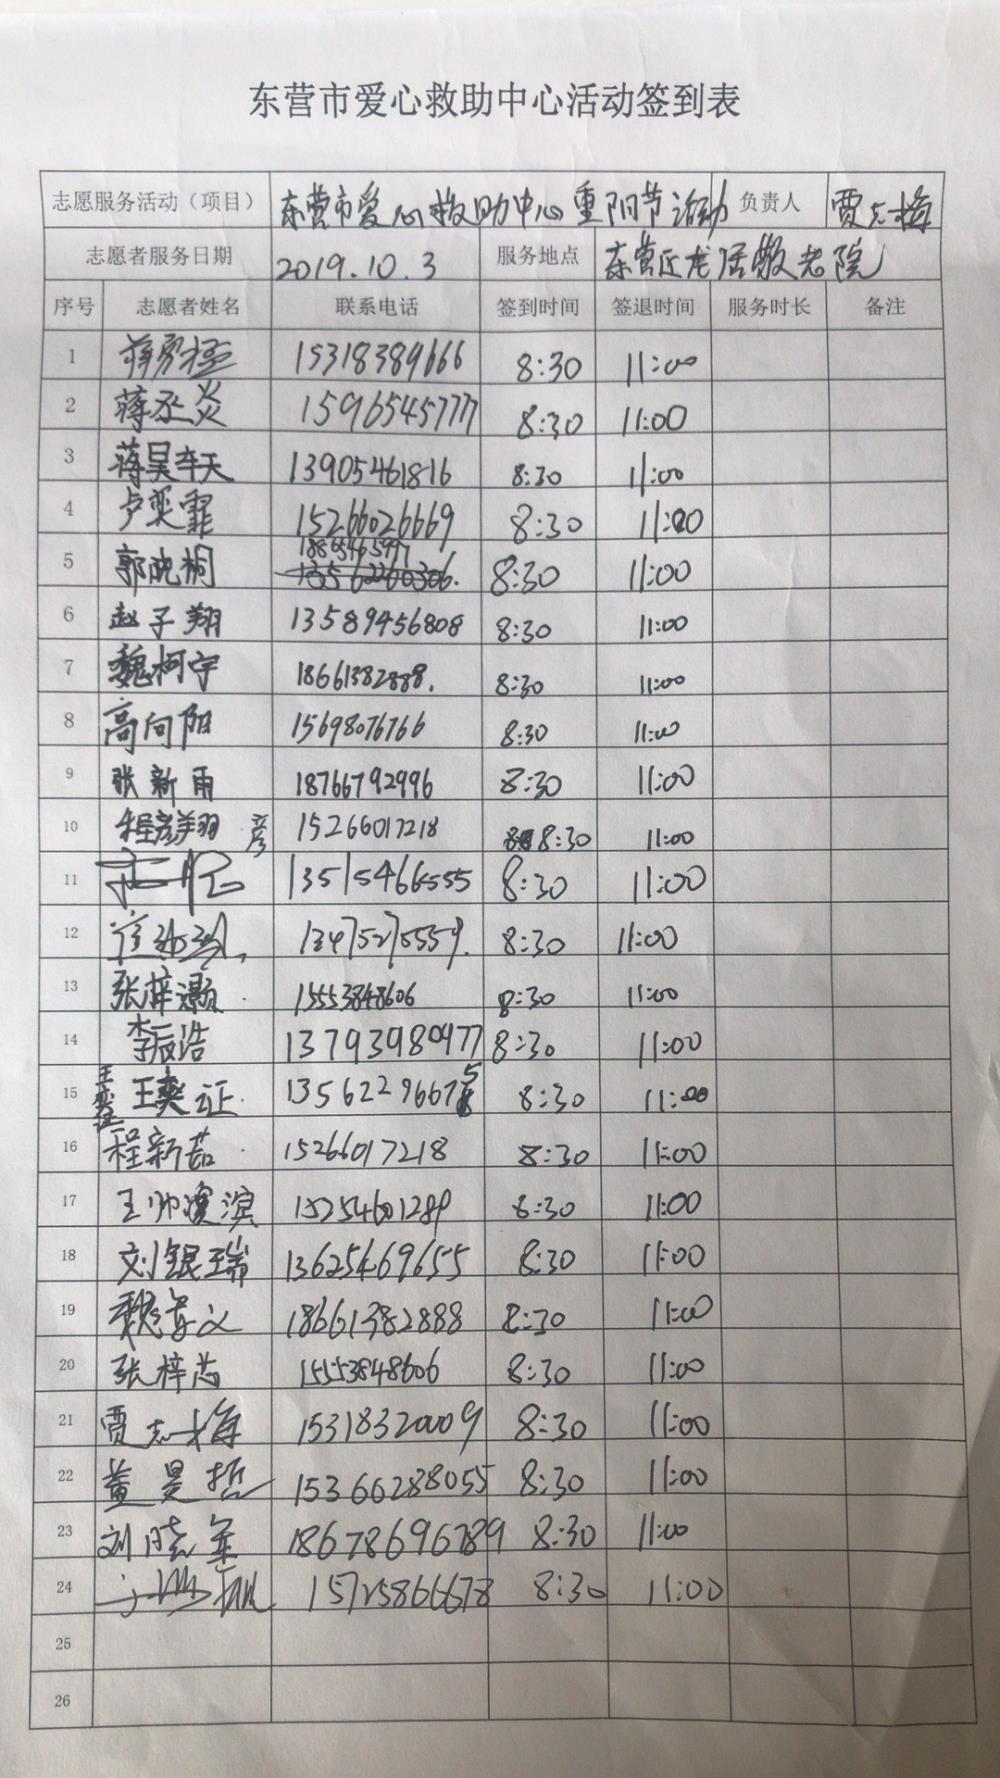 东营市爱心救助中心活动签到表
志愿服务活动（项目） 东营市爱心救助中心重阳节活动 负责人 贾志梅
志愿者服务日期 2019.10.3 服务地点 东营区龙居敬老院
序号 志愿者姓名 联系电话 签到时间 签退时间 服务时长 备注
1 15318389666 8:30 11:00
2 蒋丞炎 1596545777 8:30 11:00
3 蒋昊天 13905461816 8:30 11:00
4 卢奕霏 15266026669 8:30 11:00
5 郭晚桐 18865465997 8:30 11:00
6 赵子翔 13589456808 8:30 11:00
7 魏柯宇 18661382888. 8:30 11:00
8 高向阳 15698076766 8:30 11:00
9 张新雨 18766792996 8:30 11:00
10 程彦翔 彦 15266017218 8:30 11:00
11 13515466555 8:30 11:00
12 13475275559. 8:30 11:00
13 张梓灏 15553848606 8:30 11:00
14 李辰浩 13793980977 8:30 11:00
15 王奕证 13562296675 8:30 11:00
16 程新茹 15266017218 8:30 11:00
17 王帅滨 15254601289 8:30 11:00
18 刘银瑞 13625469655 8:30 11:00
19 18661382888 8:30 11:00
20 张梓芯 15553848606 8:30 11:00
21 贾志梅 15318320009 8:30 11:00
22 董昊哲 15366288055 8:30 11:00
23 刘晓军 18678696789 8:30 11:00
24 15725866678 8:30 11:00
25
26